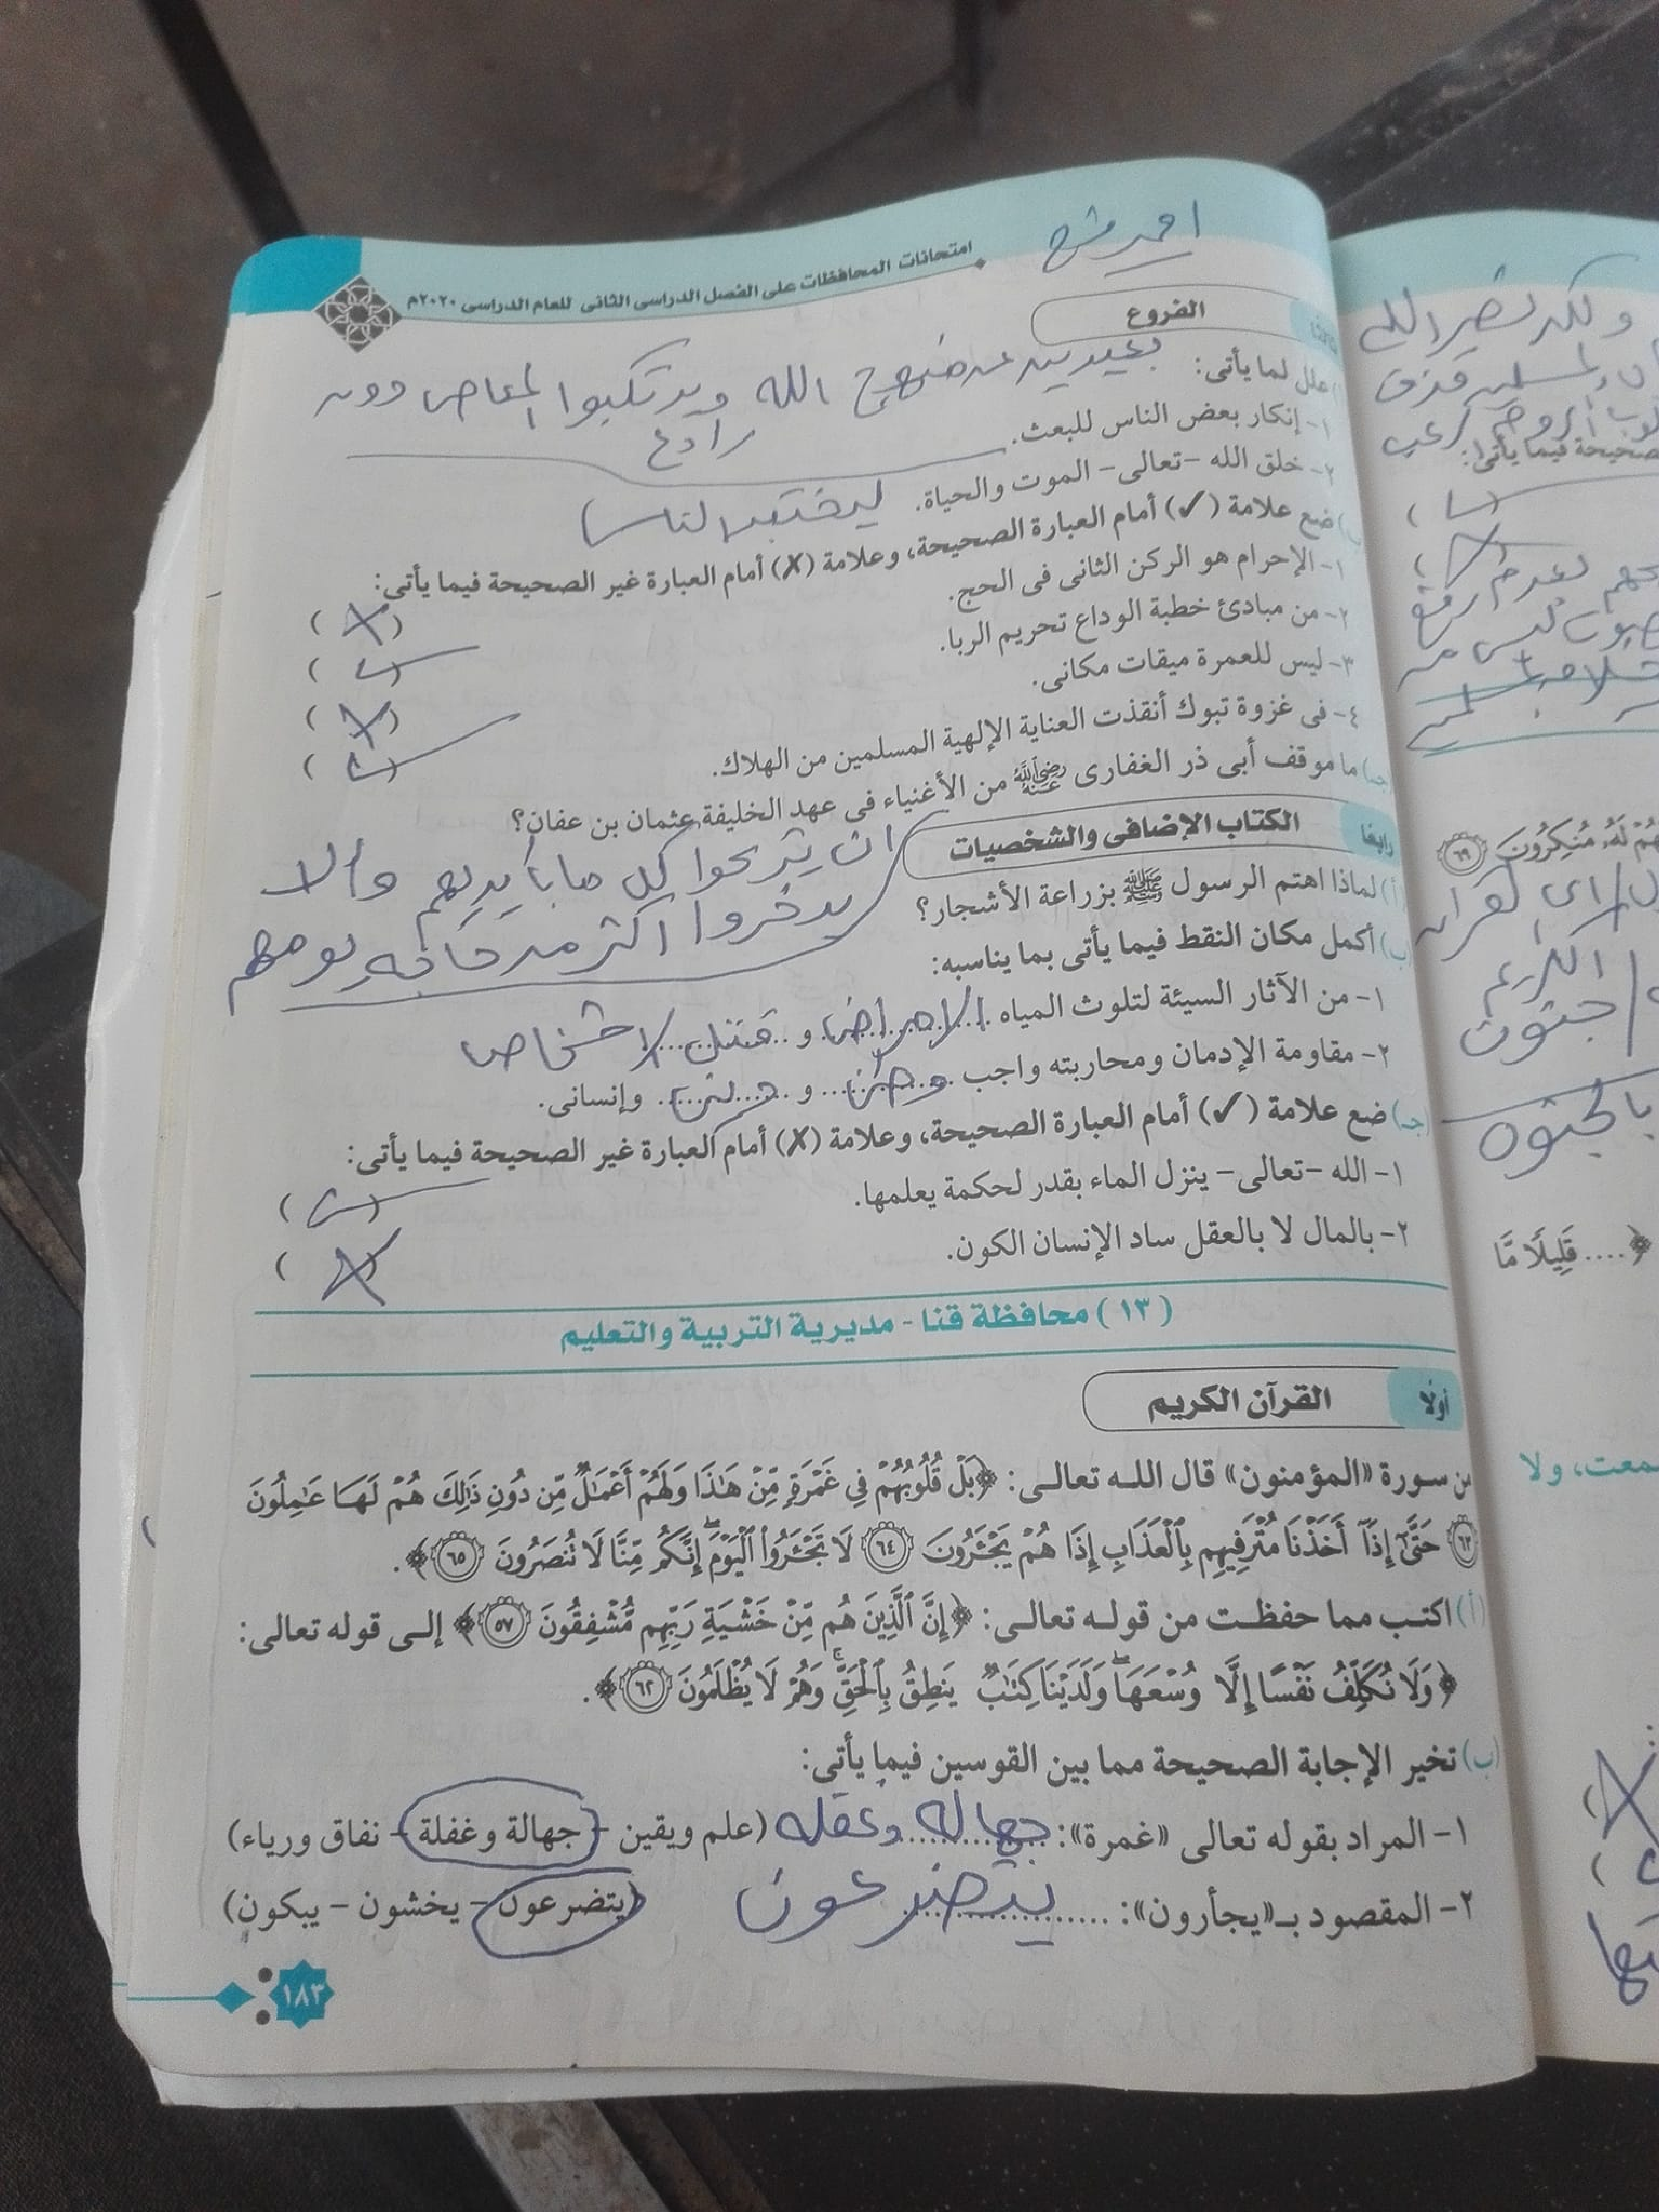 احمد
امتحانات المحافظات على الفصل الدراسى الثانى للعام الدراسى ٢٠٢٠م
ثالثا الفروع
علل لما يأتى:
بعيدين عن منهج الله ويرتكبوا المعاصى دون
رادع
١- إنكار بعض الناس للبعث.
٢- خلق الله -تعالى- الموت والحياة. ليختبر الناس
ضع علامة (✓) أمام العبارة الصحيحة، وعلامة (✗) أمام العبارة غير الصحيحة فيما يأتى:
١- الإحرام هو الركن الثانى فى الحج. (✗)
٢- من مبادئ خطبة الوداع تحريم الربا. (✓)
٣- ليس للعمرة ميقات مكانى. (✗)
٤- فى غزوة تبوك أنقذت العناية الإلهية المسلمين من الهلاك. (✓)
(جـ) ما موقف أبى ذر الغفارى رضي الله عنه من الأغنياء فى عهد الخليفة عثمان بن عفان؟
رابعًا الكتاب الإضافى والشخصيات
ان يتبرعوا كل ما بأيديهم وألا
يدخروا اكثر من حاجة يومهم
(أ) لماذا اهتم الرسول ﷺ بزراعة الأشجار؟
(ب) أكمل مكان النقط فيما يأتى بما يناسبه:
١- من الآثار السيئة لتلوث المياه الامراض و قتل الاشخاص
٢- مقاومة الإدمان ومحاربته واجب وطنى و دينى وإنسانى.
(جـ) ضع علامة (✓) أمام العبارة الصحيحة، وعلامة (✗) أمام العبارة غير الصحيحة فيما يأتى:
١- الله -تعالى- ينزل الماء بقدر لحكمة يعلمها. (✓)
٢- بالمال لا بالعقل ساد الإنسان الكون. (✗)
(١٣) محافظة قنا - مديرية التربية والتعليم
أولًا القرآن الكريم
من سورة «المؤمنون» قال الله تعالى: ﴿بَلْ قُلُوبُهُمْ فِي غَمْرَةٍ مِّنْ هَٰذَا وَلَهُمْ أَعْمَالٌ مِّن دُونِ ذَٰلِكَ هُمْ لَهَا عَامِلُونَ
٦٣ حَتَّىٰ إِذَا أَخَذْنَا مُتْرَفِيهِم بِالْعَذَابِ إِذَا هُمْ يَجْأَرُونَ ٦٤ لَا تَجْأَرُوا الْيَوْمَ إِنَّكُم مِّنَّا لَا تُنصَرُونَ ٦٥﴾.
(أ) اكتب مما حفظت من قوله تعالى: ﴿إِنَّ الَّذِينَ هُم مِّنْ خَشْيَةِ رَبِّهِم مُّشْفِقُونَ ٥٧﴾ إلى قوله تعالى:
﴿وَلَا نُكَلِّفُ نَفْسًا إِلَّا وُسْعَهَا وَلَدَيْنَا كِتَابٌ يَنطِقُ بِالْحَقِّ وَهُمْ لَا يُظْلَمُونَ ٦٢﴾.
(ب) تخير الإجابة الصحيحة مما بين القوسين فيما يأتى:
١- المراد بقوله تعالى «غمرة»: جهاله وغفله (علم ويقين - جهالة وغفلة - نفاق ورياء)
٢- المقصود بـ«يجأرون»: يتضرعون (يتضرعون - يخشون - يبكون)
١٨٣
صحيحة فيما يأتى:
هُمْ لَهُ مُنكِرُونَ ٦٩
القران
الكريم
جنون
﴿.... قَلِيلًا مَّا
سمعت، ولا